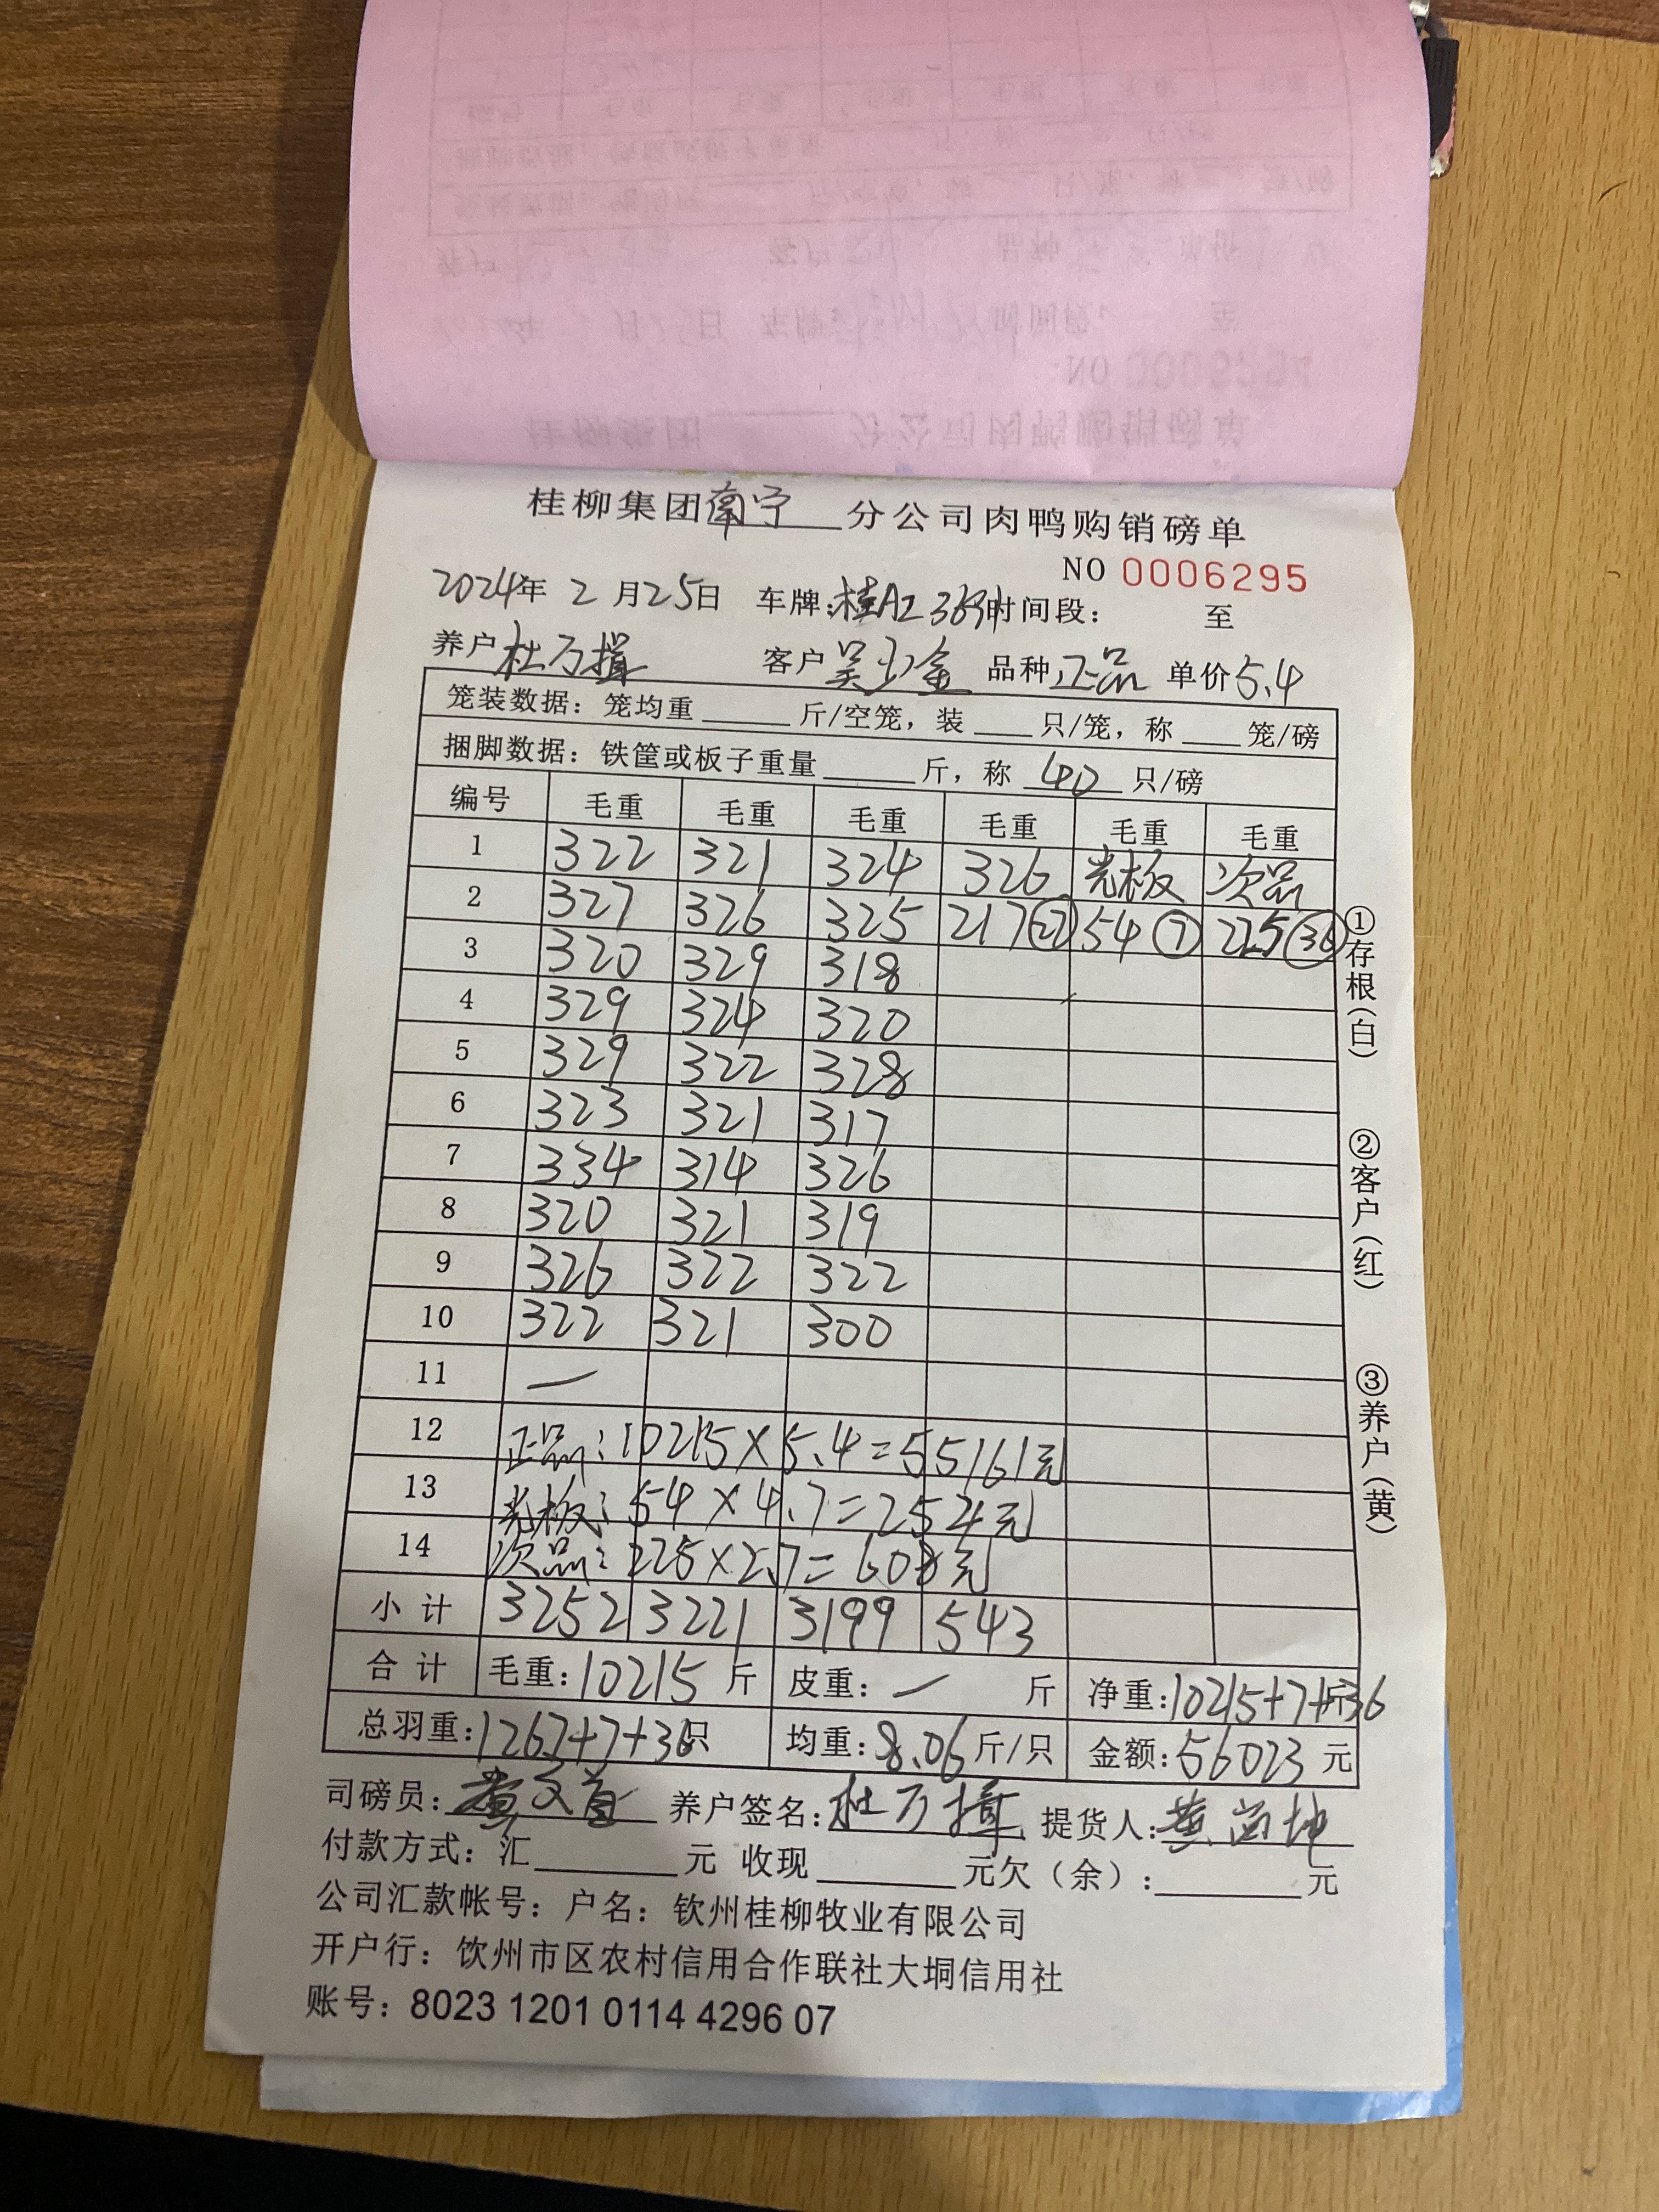 桂柳集团南宁分公司肉鸭购销磅单
NO 0006295
2024年 2 月25日 车牌:桂AZ369 时间段: 至
养户 杜万楫 客户 吴 金 品种 正品 单价 5.4
笼装数据: 笼均重 斤/空笼, 装 只/笼, 称 笼/磅
捆脚数据: 铁筐或板子重量 斤, 称 40 只/磅
编号 毛重 毛重 毛重 毛重 毛重 毛重
1 322 321 324 326 光板 次品
2 327 326 325 217(27) 54(7) 225(36)
3 320 329 318
4 329 324 320
5 329 322 328
6 323 321 317
7 334 314 326
8 320 321 319
9 326 322 322
10 322 321 300
11 —
12 正品: 10215×5.4=55161元
13 光板: 54×4.7=254元
14 次品: 225×2.7=608元
小计 3252 3221 3199 543
合计 毛重: 10215 斤 皮重: — 斤 净重: 10215+7+36 斤
总羽重: 1267+7+36 只 均重: 8.06 斤/只 金额: 56023 元
司磅员: 养户签名: 杜万 提货人: 黄
付款方式: 汇 元 收现 元欠(余): 元
公司汇款帐号: 户名: 钦州桂柳牧业有限公司
开户行: 饮州市区农村信用合作联社大垌信用社
账号: 8023 1201 0114 4296 07
①存根(白)
②客户(红)
③养户(黄)